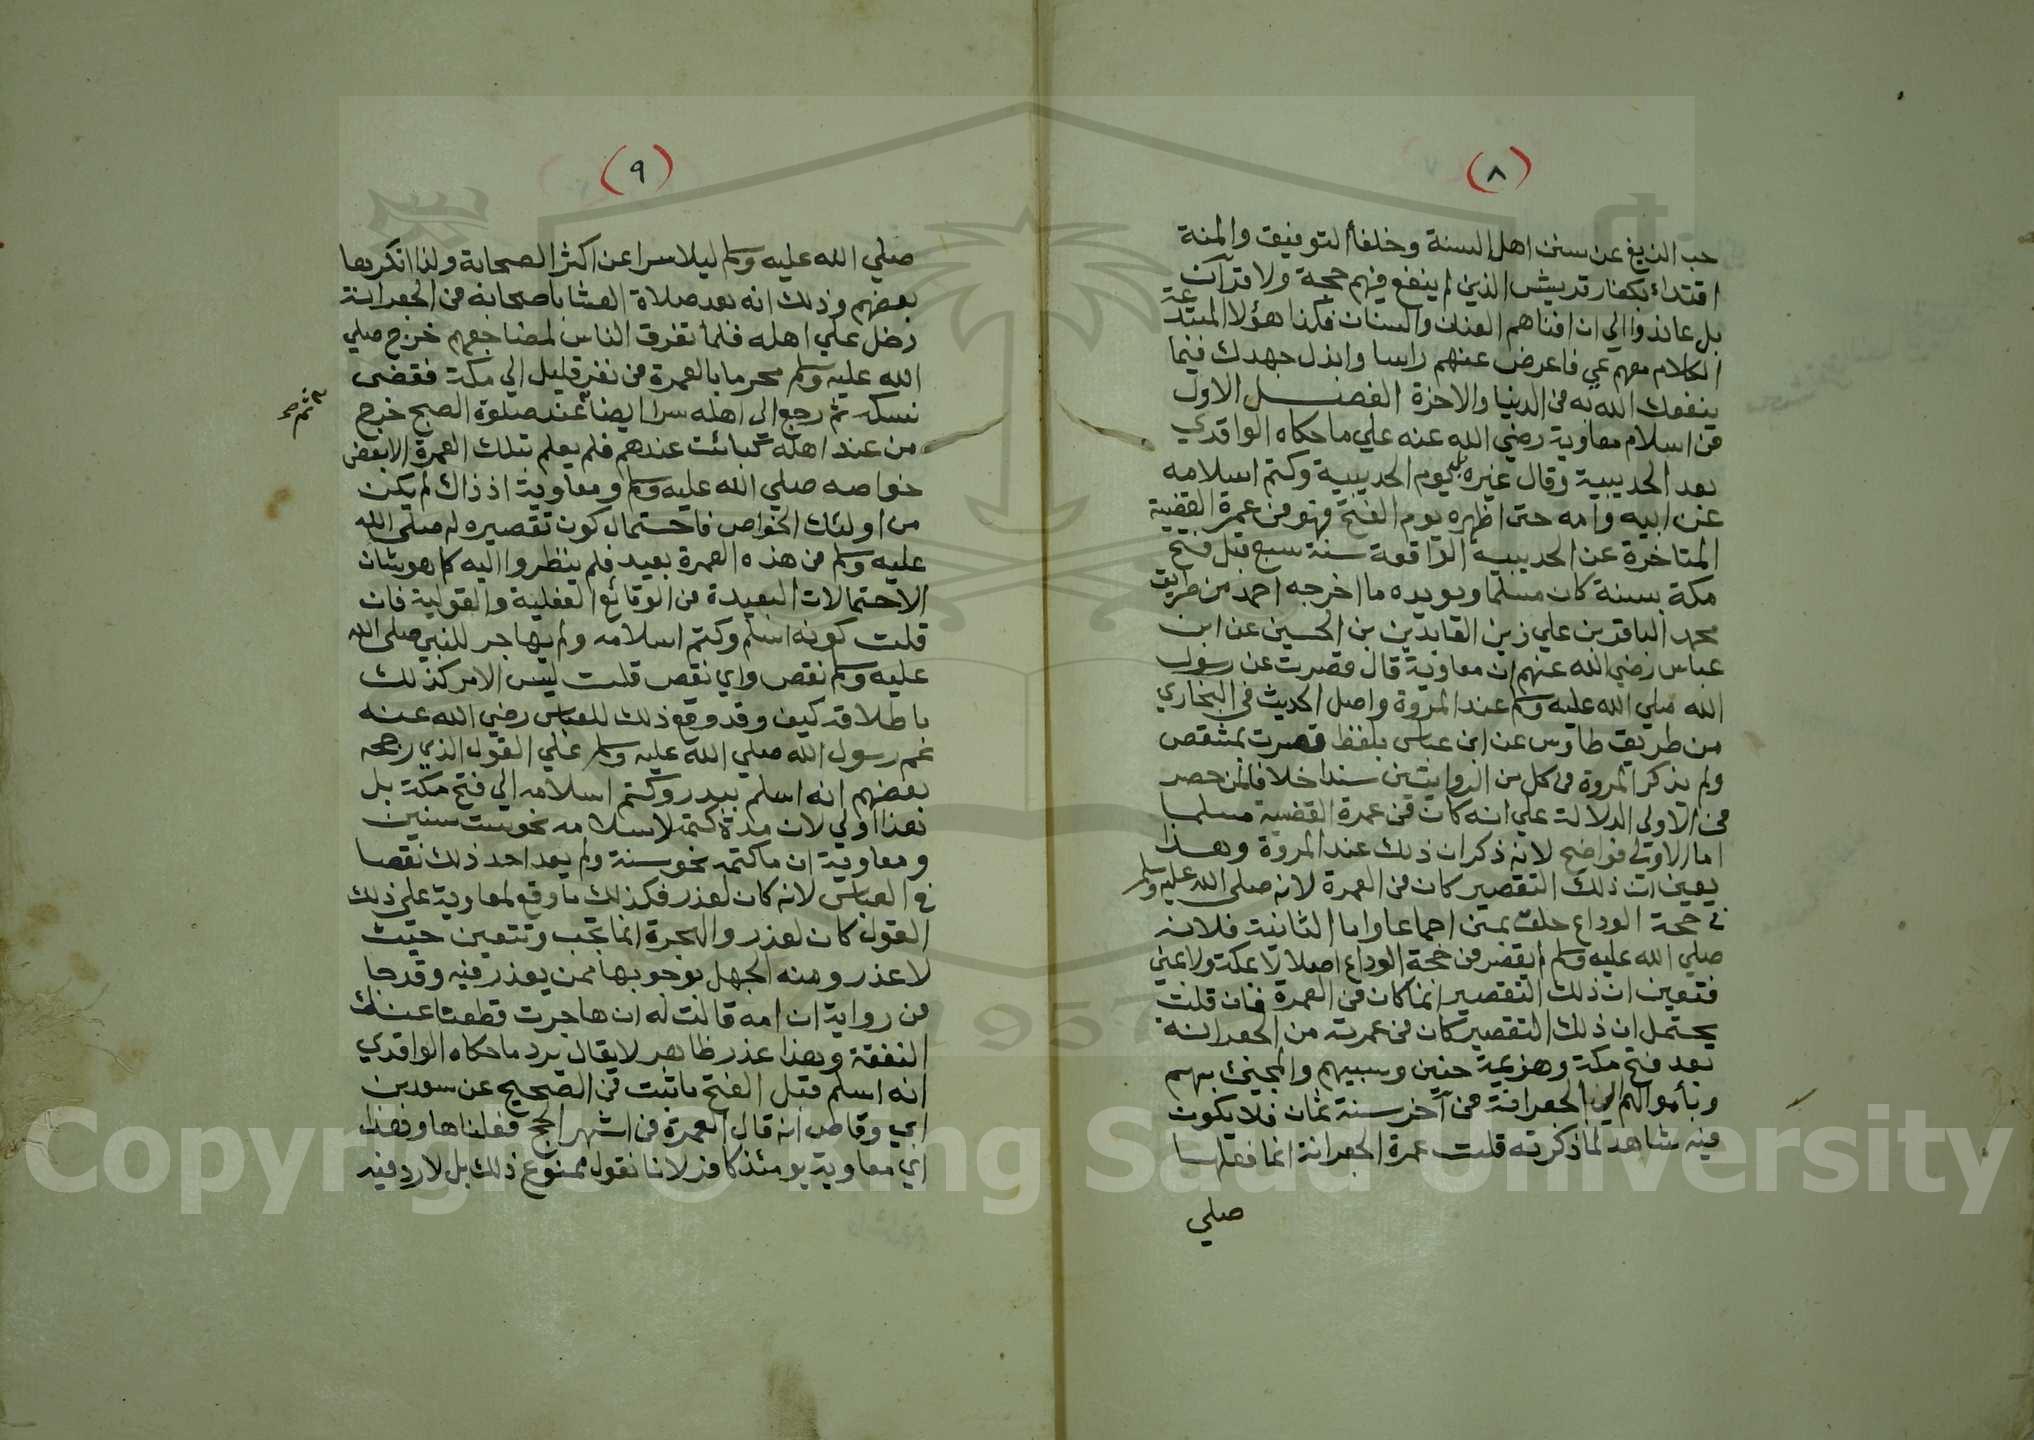 (٨)
حب الزيغ عن سنن اهل السنة وخلفا التوفيق والمنة
اقتداء بكفار قريش الذين لم ينفع فيهم حجة ولا قرآن
بل عاندوا الي ان افناهم العناد والسنان فكذا هؤلا المبتدعة
الكلام معهم عي فاعرض عنهم راسا وابذل جهدك فيما
ينفعك الله به في الدنيا والاخرة الفصــل الاول
في اسلام معاوية رضي الله عنه علي ما حكاه الواقدي
بعد الحديبية وقال غيره بل يوم الحديبية وكتم اسلامه
عن ابيه وامه حتى اظهره يوم الفتح فهو في عمرة القضية
المتاخرة عن الحديبية الواقعة سنة سبع قبل فتح
مكة بسنة كان مسلما ويويده ما اخرجه احمد من طريق
محمد الباقر بن علي زين العابدين بن الحسين عن ابن
عباس رضي الله عنهم ان معاوية قال قصرت عن رسول
الله صلي الله عليه وسلم عند المروة واصل الحديث في البخاري
من طريق طاوس عن ابن عباس بلفظ قصرت بمشقص
ولم يذكر المروة في كل من الروايتين سندا خلافا لمن حصر
في الاولي الدلالة علي انه كان في عمرة القضية مسلما
اما الاولي فواضح لانه ذكر ان ذلك عند المروة وهذا
يعين ان ذلك التقصير كان في العمرة لانه صلى الله عليه وسلم
في حجة الوداع حلق بمنى اجماعا واما الثانية فلانه
صلي الله عليه وسلم لم يقصر في حجة الوداع اصلا لا بمكة ولا بمني
فتعين ان ذلك التقصير انما كان في العمرة فان قلت
يحتمل ان ذلك التقصير كان في عمرته من الجعرانة
بعد فتح مكة وهزيمة حنين وسبيهم والمجيئ بهم
وبأموالهم الي الجعرانة في آخر سنة ثمان فلا يكون
فيه شاهد لما ذكرته قلت عمرة الجعرانة انما فعلها
صلي
(٩)
صلي الله عليه وسلم ليلا سرا عن اكثر الصحابة ولذا انكرها
بعضهم وذلك انه بعد صلاة العشا باصحابه في الجعرانة
دخل علي اهله فلما تفرق الناس لمضاجعهم خرج صلي
الله عليه وسلم محرما بالعمرة في نفر قليل الي مكة فقضى
نسكه ثم رجع الى اهله سرا ايضا عند صلوة الصبح خرج
ثم صح
من عند اهله كبائت عندهم فلم يعلم بتلك العمرة الا بعض
خواصه صلي الله عليه وسلم ومعاوية اذ ذاك لم يكن
من اولئك الخواص فاحتمال كون تقصيره له صلى الله
عليه وسلم في هذه العمرة بعيد فلم ينظروا اليه كما هو شان
الاحتمالات البعيدة في الوقائع الفعلية والقولية فان
قلت كونه اسلم وكتم اسلامه ولم يهاجر للنبي صلى الله
عليه وسلم نقص واي نقص قلت ليس الامر كذلك
باطلاقه كيف وقد وقع ذلك للعباس رضي الله عنه
عم رسول الله صلي الله عليه وسلم علي القول الذي رجحه
بعضهم انه اسلم ببدر وكتم اسلامه الي فتح مكة بل
هذا اولي لان مدة كتمه لاسلامه نحو ست سنين
ومعاوية انما كتمه نحو سنة ولم يعد احد ذلك نقصا
في العباس لانه كان لعذر فكذلك ما وقع لمعاوية علي ذلك
القول كان لعذر والهجرة انما تجب وتتعين حيث
لا عذر ومنه الجهل بوجوبها ممن يعذر فيه وقد جا
في رواية ان امه قالت له ان هاجرت قطعنا عنك
النفقة وهذا عذر ظاهر لا يقال يرد ما حكاه الواقدي
انه اسلم قبل الفتح ما ثبت في الصحيح عن سعد بن
ابي وقاص انه قال العمرة في اشهر الحج فعلناها وهذا
اي معاوية يومئذ كافر لانا نقول ممنوع ذلك بل لا رد فيه
1957
Copyright © King Saud University